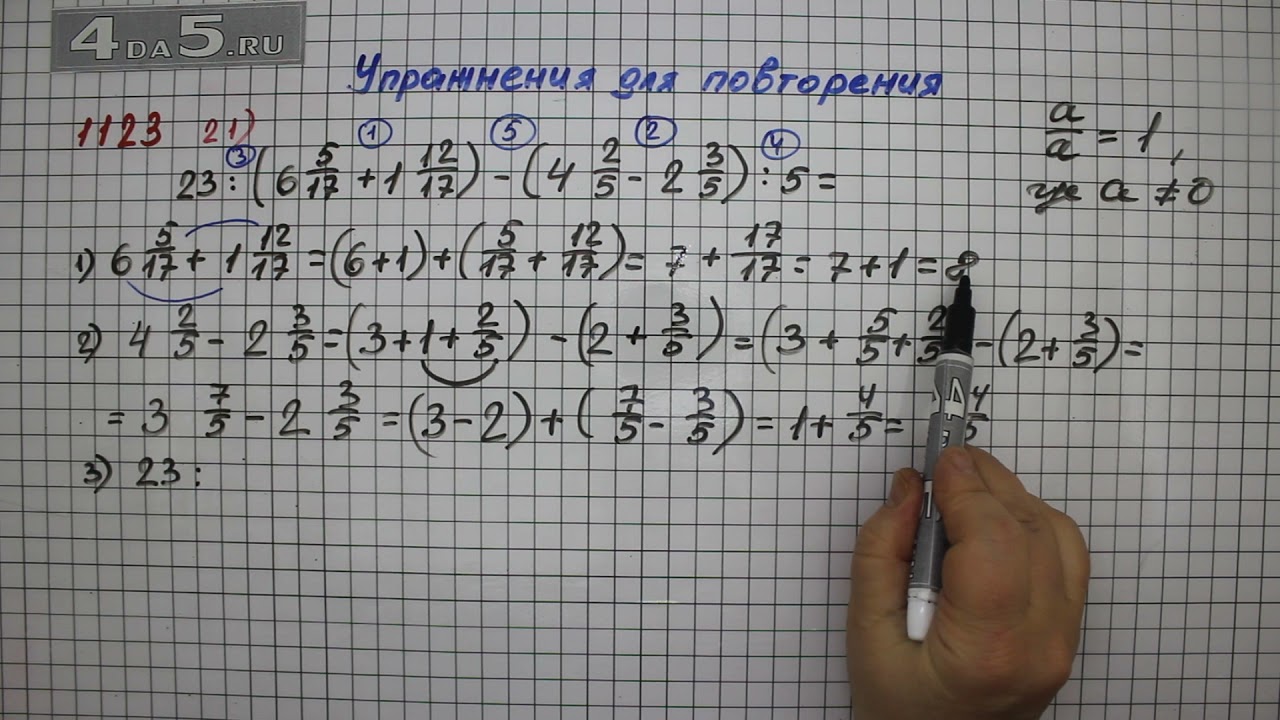 4DA5.RU
Упражнения для повторения
1123 21)
① ⑤ ② ④
③
23 : (6 5/17 + 1 12/17) - (4 2/5 - 2 3/5) : 5 =
a/a = 1,
где a ≠ 0
1) 6 5/17 + 1 12/17 = (6+1) + (5/17 + 12/17) = 7 + 17/17 = 7 + 1 = 8
2) 4 2/5 - 2 3/5 = (3 + 1 + 2/5) - (2 + 3/5) = (3 + 5/5 + 2/5 - (2 + 3/5) =
= 3 7/5 - 2 3/5 = (3 - 2) + (7/5 - 3/5) = 1 + 4/5 = 4/5
3) 23 :